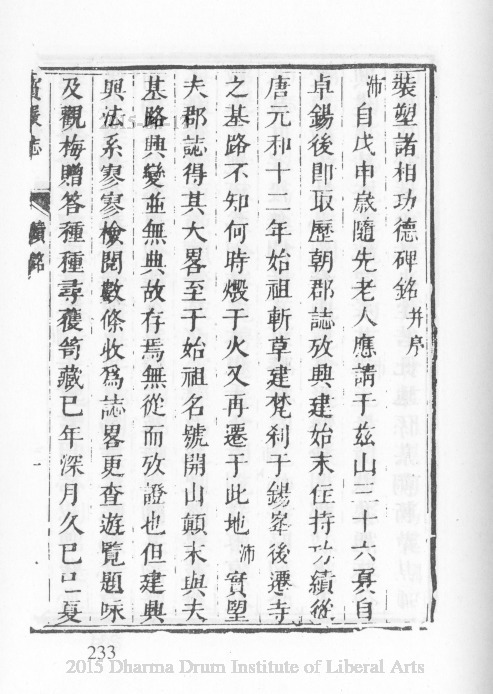 裝塑諸相功德碑銘并序
沛自戊申歲隨先老人應請于玆山三十六夏自
卓錫後卽取歷朝郡誌攷興建始末住持功績從
唐元和十二年始祖斬草建梵刹于錫峯後遷寺
之基路不知何時燬于火又再遷于此地沛實聖
夫郡誌得其大畧至于始祖名號開山顛末與夫
基路興變並無典故存焉無從而攷證也但建興
興法系寥寥檢閱數條收爲誌畧更查遊覽題咏
及觀梅贈答種種尋獲笥藏已年深月久已已夏
嚴志
續銘
一
233
2015 Dharma Drum Institute of Liberal Arts